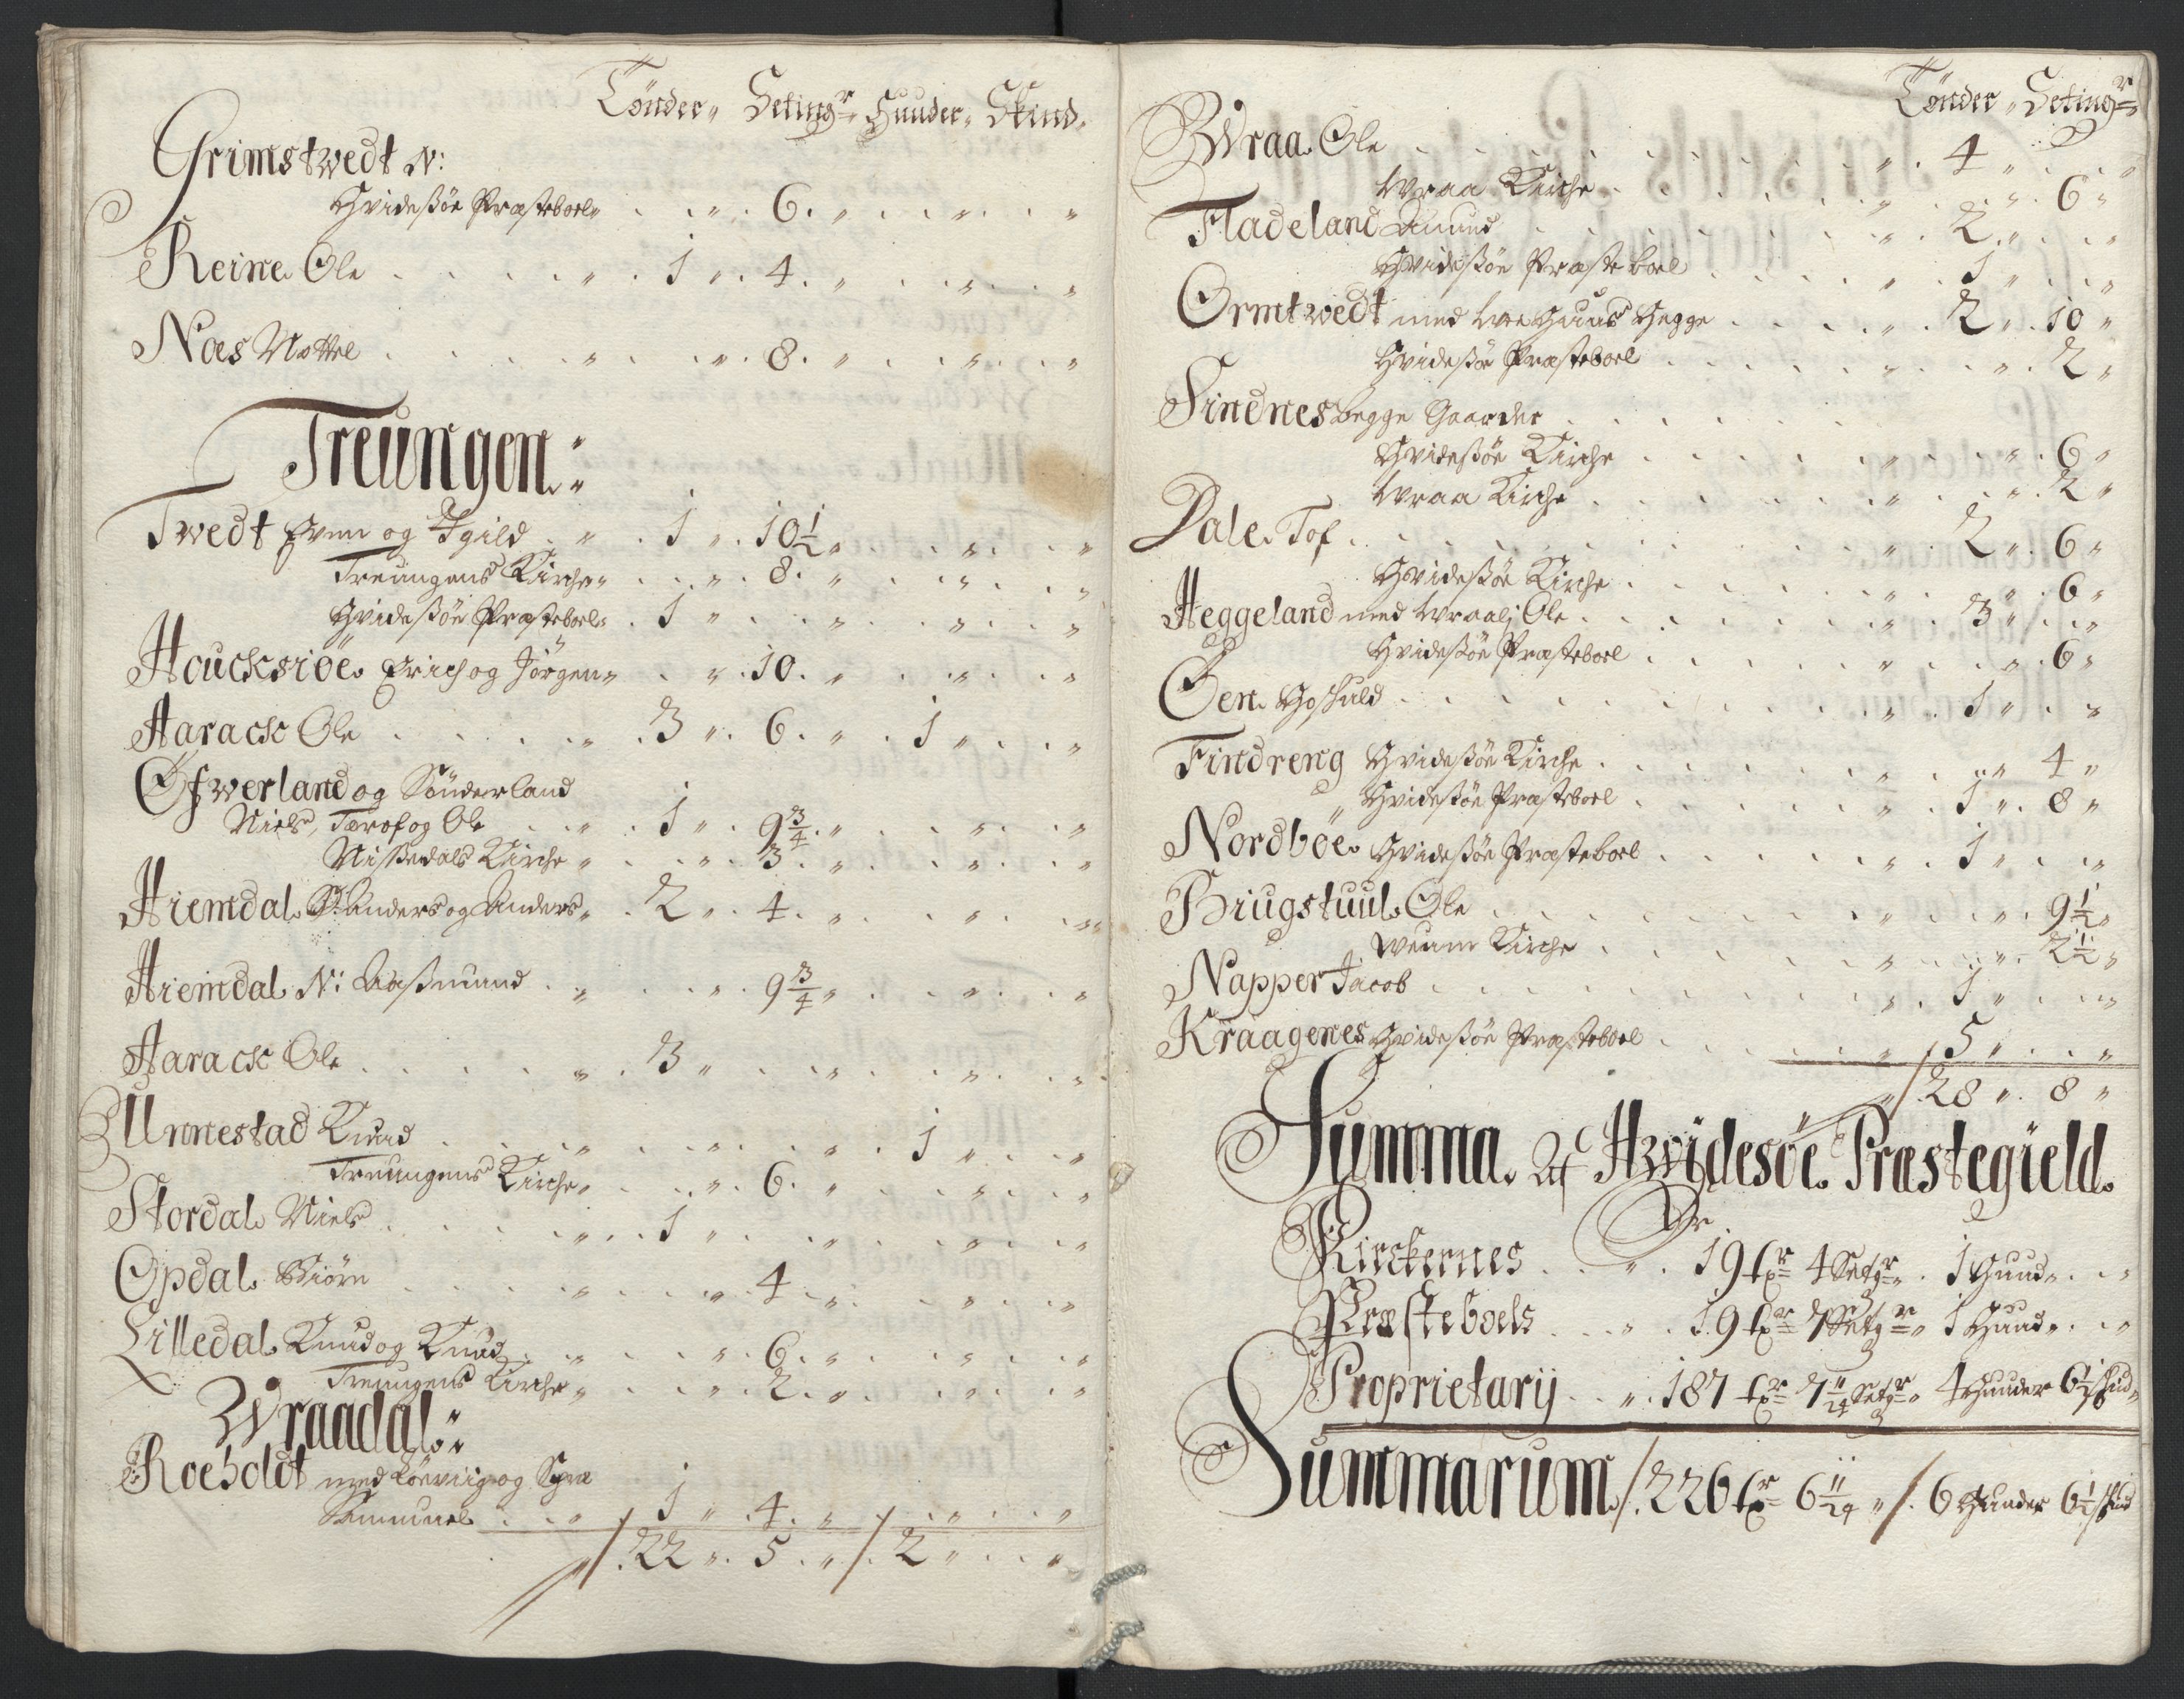 Tönder„ Setingr„ Huuder„ Skind„
Grimstwedt N:
Hvidesöe Præsteboel„ 6.
Reine Ole 1 „ 4.
Næs Nottel 8.
Treungen:
Twedt Even og Egild 1 „ 10½
Treungens Kirche„ 8.
Hvidesöe Præsteboel„ 1 „
Houcksiöe Erich og Jörgen„ 10.
Aarack Ole 3 „ 6. „ 1 „
Öfwerland og Sönderland
Niels, Tarof og Ole 1 „ 9¾
Nissedals Kirche „ 3.
Hiemdal S: Anders og Anders„ 2 „ 4.
Hiemdal N: Aassmund 9¾
Aarack Ole 3 „
Unnestad Knud 1 „
Treungens Kirche„ 6.
Stordal Niels 1 „
Opdal Biörn 4
Lilledal Knud og Knud 6.
Treungens Kirche„ 2.
Wraadal:
Roeholdt med Löeviig og
Samuel 1 „ 4.
/. 22 „ 5 „ /. 2 „
Tönder„ Setingr
Wraa Ole 4 „
Wraa Kirche 6 „
Fladeland Amund 2 „
Hvidesöe Præsteboel 1 „
Ormtwedt med Hegge 2 „ 10 „
Hvidesöe Præsteboel 2 „
Sindnes begge Gaarder
Hvidesöe Kirche 6 „
Wraa Kirche 2 „
Dale Tof 2 „ 6 „
Hvidesöe Kirche 6 „
Heggeland med Wraalj Ole 3 „
Hvidesöe Præsteboel 6 „
Öen 1 „
Findreng Hvidesöe Kirche 4 „
„ Hvidesöe Præsteboel 1 „ 8 „
Nordböe Hvidesöe Præsteboel 1 „
Briugstuul Ole 9½ „
Kirche 2½ „
Napper Jacob 1 „
Kraagenes Hvidesöe Præsteboel 5 „
/. 28 „ 8 „
Summa Af Hwidesöe Præstegield
Er
Kirckernes 19 tr 4 Setgr„ 1 Huud„
Præsteboels 19 tr 7 Setgr„ 1 Huud„
Proprietarij 187 tr 7 11/24 Setgr„ 4 Huuder 6½ skind„
Summarum /. 226 tr 6 11/24 „ /. 6 Huuder 6½ skind